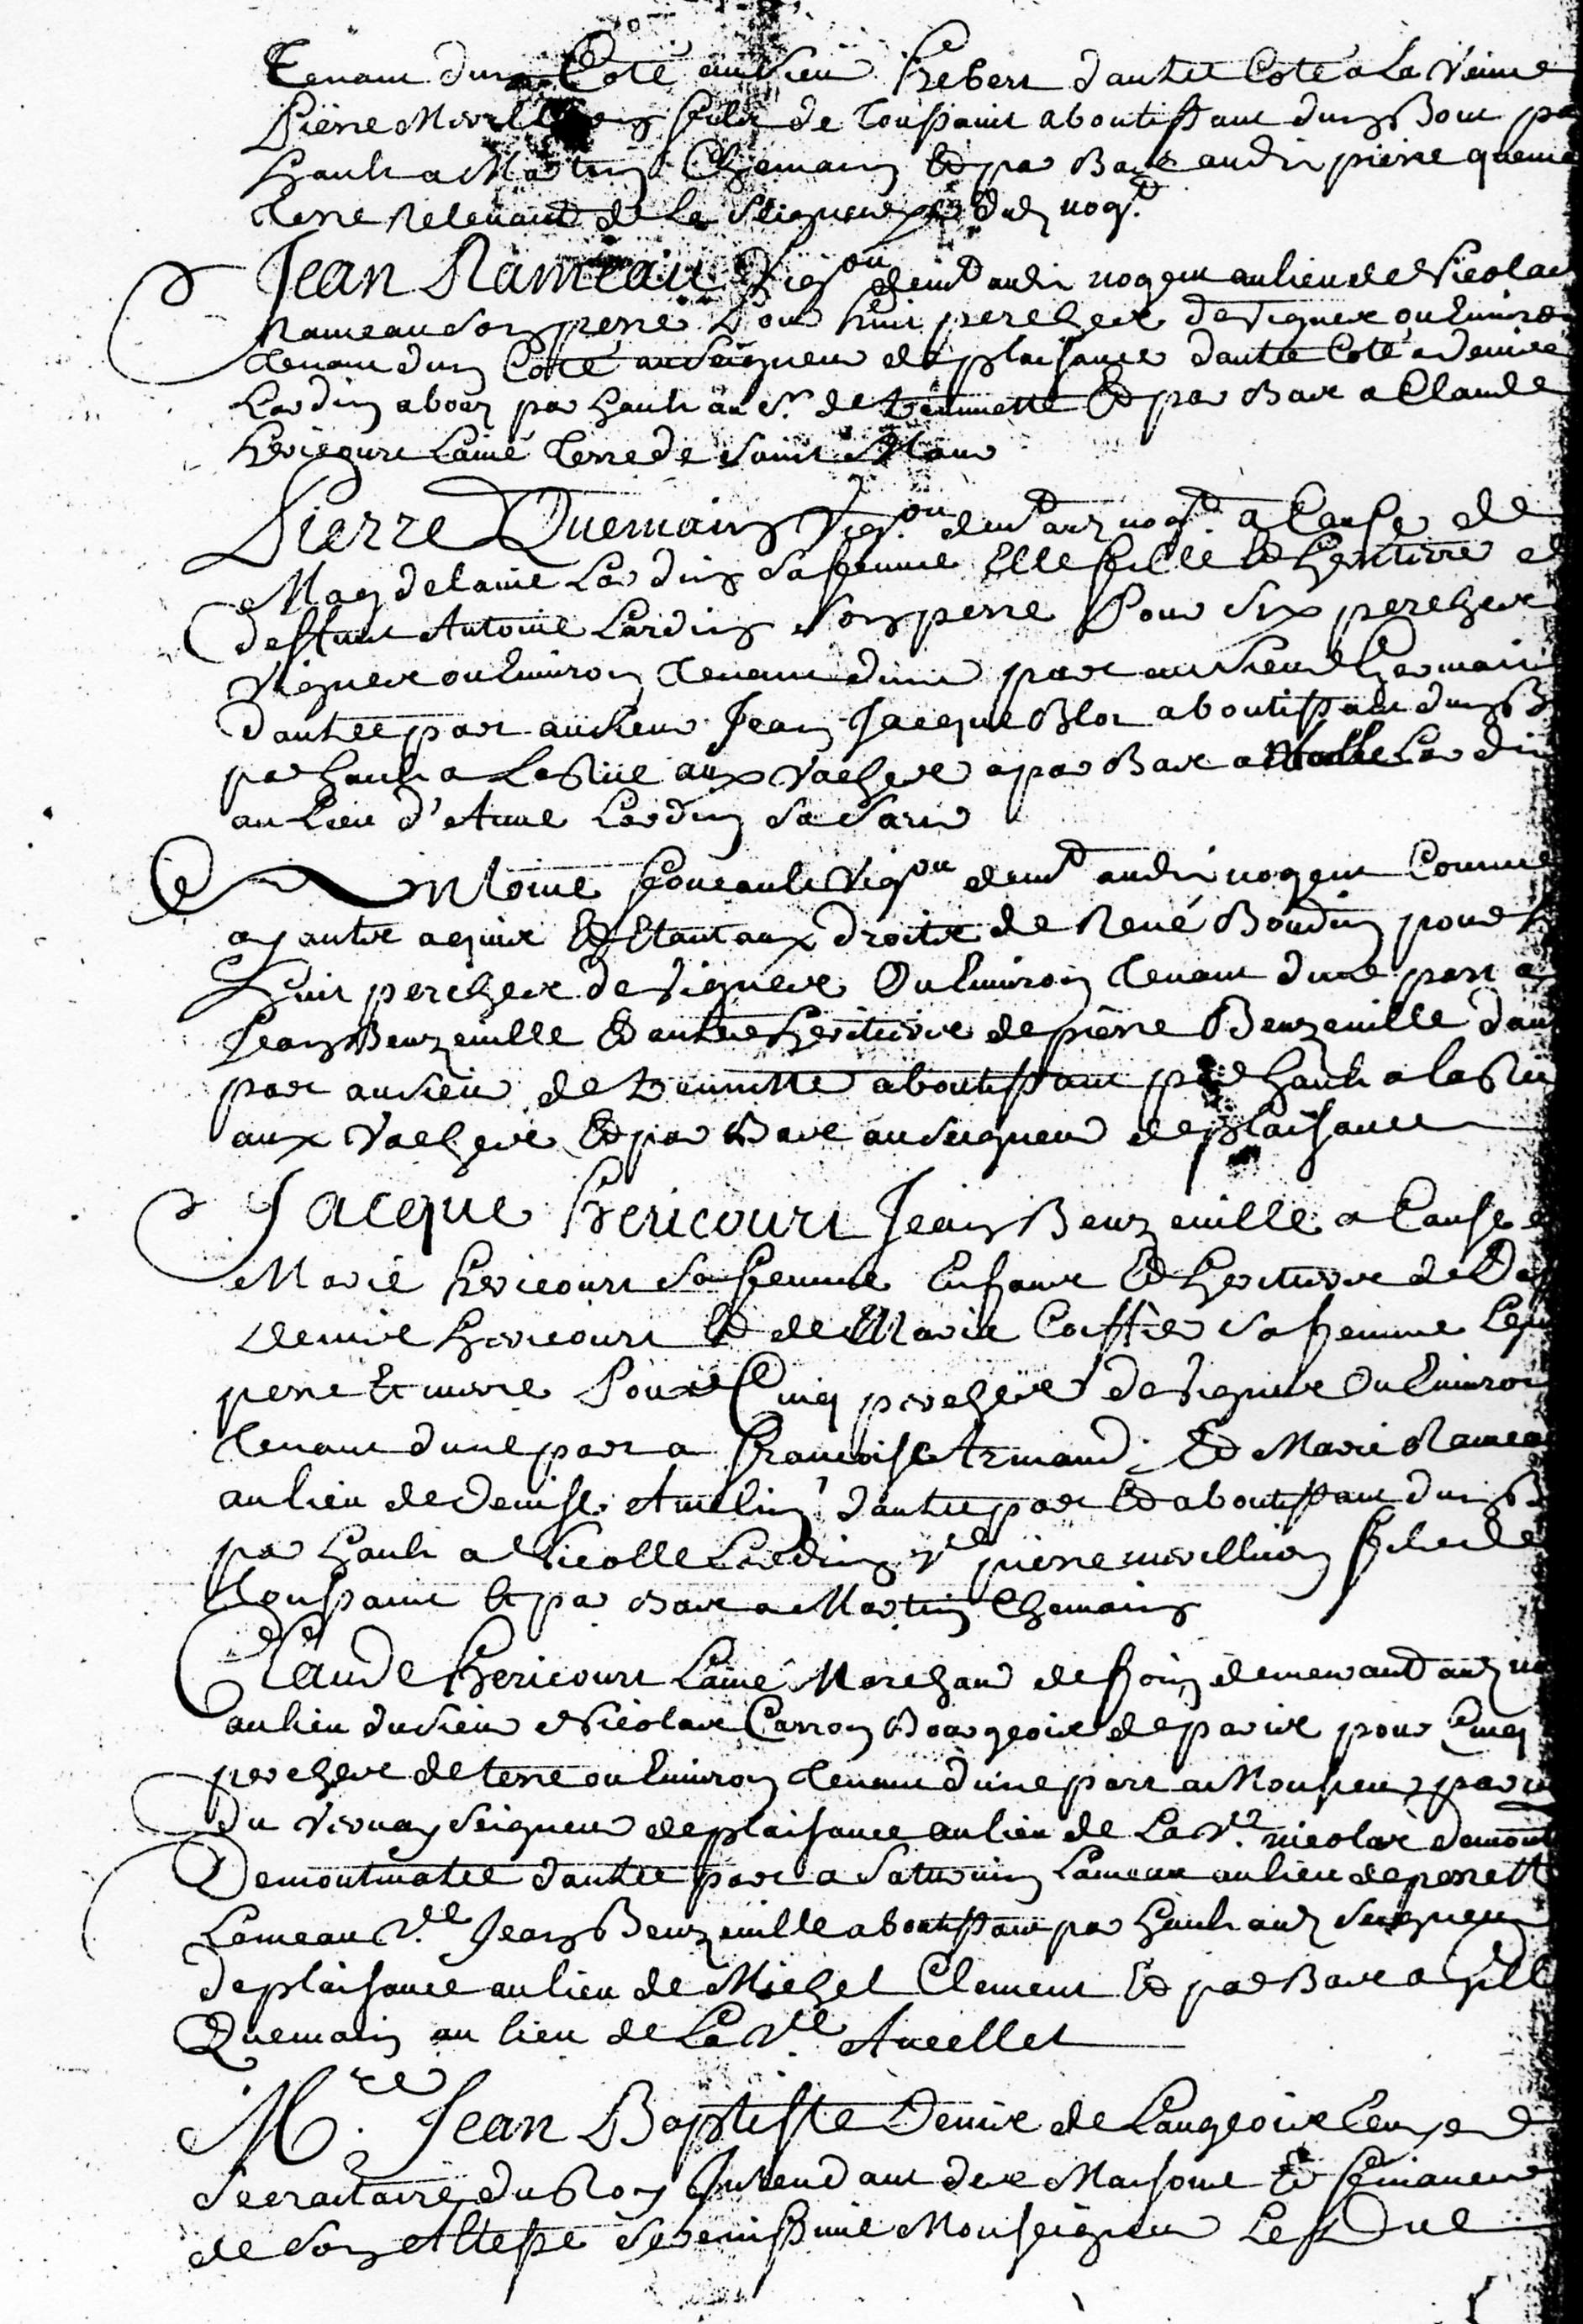 Tenant dun Coté au sieur hebert dautre Coté a La Veuve
Pierre fils de Toussaint aboutissant dun Bout par
hault a Martin Chemain Et par Bas audit pierre quemain
terre relevant de La Seigneurie dud nogt
Jean Rameau Vigon demt audit nogent au lieu de Nicolas
Rameau son perre Pour huit perches de vignes ou Environ
tenant dun Coté au seigneur de plaisance dautre Coté a denise
Lardin about par hault au Sr de et par Bas a Claude
hericourt Lainé terre de saint Maur
Pierre Quemain Vigon demt aud nogt a Cause de
Magdelaine Lardin sa femme Elle fille Et heritierre de
deffunt Antoine Lardin son perre Pour six perches
Vignes ou Environ tenant dune part au sieur Germain
dautre part au sieur Jean Jacque Blot aboutissant dun B
par hault a La Rue aux Vaches a par Bas a Lardin
au Lieu d'Anne Lardin sa sœur
Antoine foucault Vigon demt audit nogent Comme
ayantre aquis Et Etant aux droits de René Boudin pour
huit perches de vignes Ou Environ tenant dune part a
Jean Beuzeville Et autres heritiers de pierre Beuzeville dautre
part au sieur de aboutissant par hault a la Rue
aux Vaches Et par Bas au seigneur de plaisance
Jacque hericourt Jean Beuzeville a Cause de
Marie hericourt sa femme Enfans Et heritiers de Def
denise hericourt Et de Marie Coiffier sa femme Leur
perre Et merre Pour Cinq perches de vignes Ou Environ
tenant dune part a francoise Armand Et Marie Rameau
au lieu de denise Amelin dautre part Et aboutissant dun B
par hault a Nicolle Lardin Ve pierre mevillion fils de
Toussaint Et par Bas a Martin Chemain
Claude hericourt Lainé Marchand de foin demeurant aud no
au lieu du sieur Nicolas Carron Bourgeois de paris pour Cinq
perches de terre ou Environ tenant dune part a Monsieur paris
Du Vernay seigneur de plaisance au lieu de La Ve nicolas Demont
Demontmatre dautre part a saturnin Lameau au lieu de perrette
Lameau Ve Jean Beuzeville aboutissant par hault aud seigneur
de plaisance au lieu de Michel Clement Et par Bas a
Quemain au lieu de La Ve Ancellet
Mre Jean Baptiste Denis de Langeois
secraitaire du Roy Intendant des Maisons Et finances
de son Altesse serenissime Monseigneur Le Duc